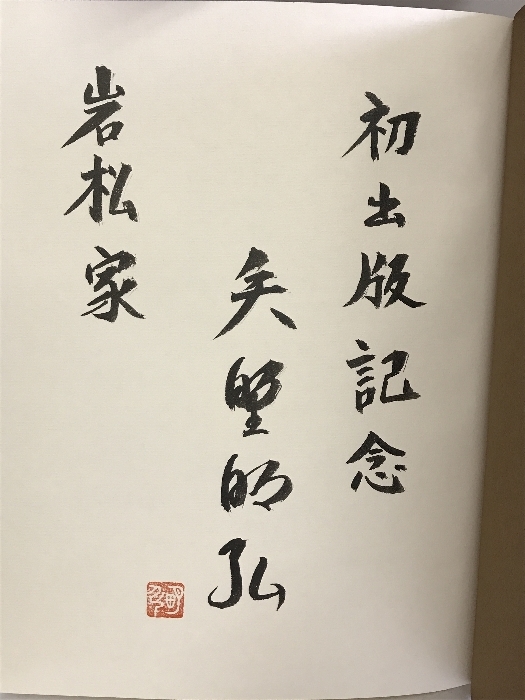 初出版記念
矢 明弘
岩松家